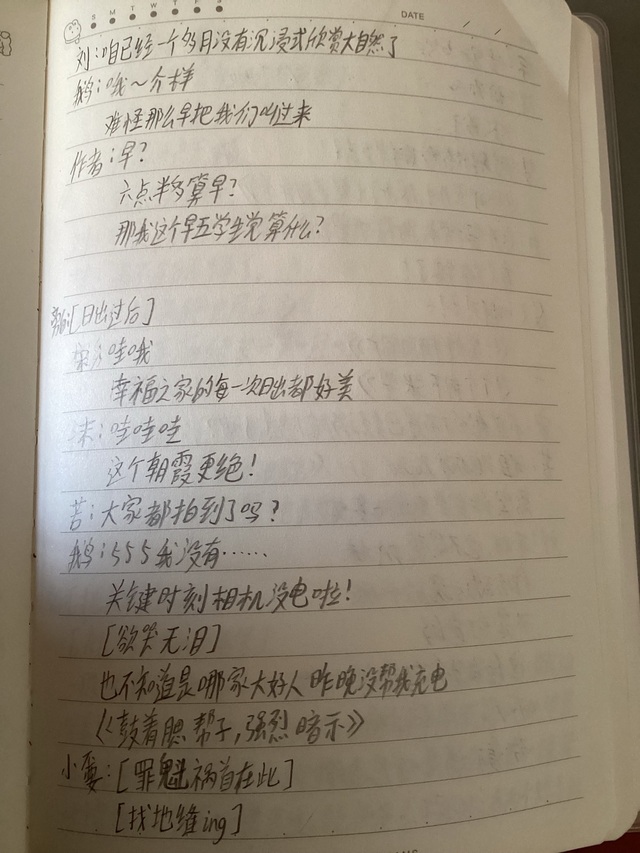 S M T W T F S
DATE / /
刘:咱已经一个多月没有沉浸式欣赏大自然了
鹅:哦~介样
难怪那么早把我们叫过来
作者:早?
六点半多算早?
那我这个早五学生党算什么?
[日出过后]
哇哦
幸福之家的每一次日出都好美
哇哇哇
这个朝霞更绝!
苦:大家都拍到了吗?
鹅:555我没有……
关键时刻相机没电啦!
[欲哭无泪]
也不知道是哪家大好人昨晚没帮我充电
《《鼓着腮帮子,强烈暗示》》
小雯:[罪魁祸首在此]
[找地缝ing]